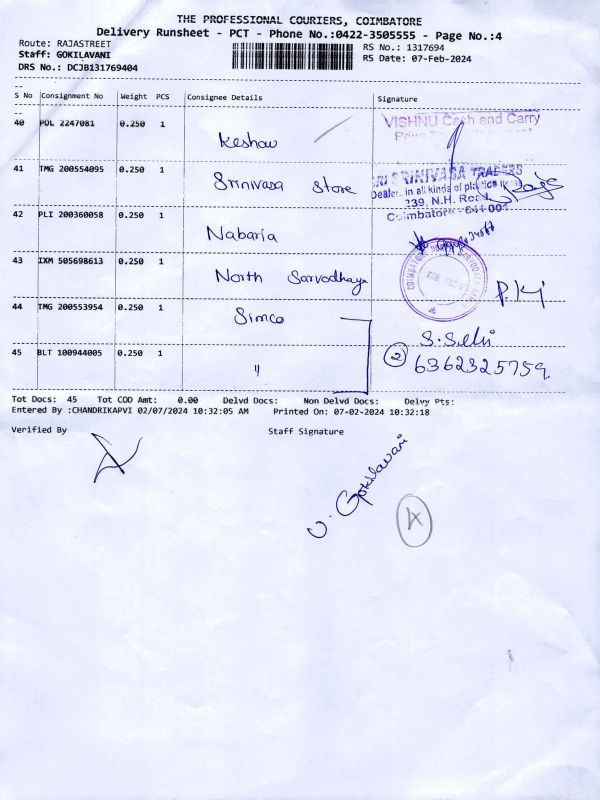 THE PROFESSIONAL COURIERS, COIMBATORE
Delivery Runsheet - PCT - Phone No.:0422-3505555 - Page No.:4
Route: RAJASTREET
RS No.: 1317694
Staff: GOKILAVANI
RS Date: 07-Feb-2024
DRS No.: DCJB131769404
S No Consignment No Weight PCS Consignee Details Signature
40 POL 2247081 0.250 1 Keshav
VISHNU Cash and Carry
41 TMG 200554095 0.250 1 Srinivasa Store
SRI SRINIVASA TRADERS
Dealers in all kinds of plastics
239, N.H. Road,
Coimbatore - 641 001
42 PLI 200360058 0.250 1 Nabaria
43 IXM 505698613 0.250 1 North Sarvodhaya
44 TMG 200553954 0.250 1 Simco
S. Selvi
45 BLT 100944005 0.250 1 "
2 6362325759
Tot Docs: 45 Tot COD Amt: 0.00 Delvd Docs: Non Delvd Docs: Delvy Pts:
Entered By :CHANDRIKAPVI 02/07/2024 10:32:05 AM Printed On: 07-02-2024 10:32:18
Verified By Staff Signature
V. Gokilavani